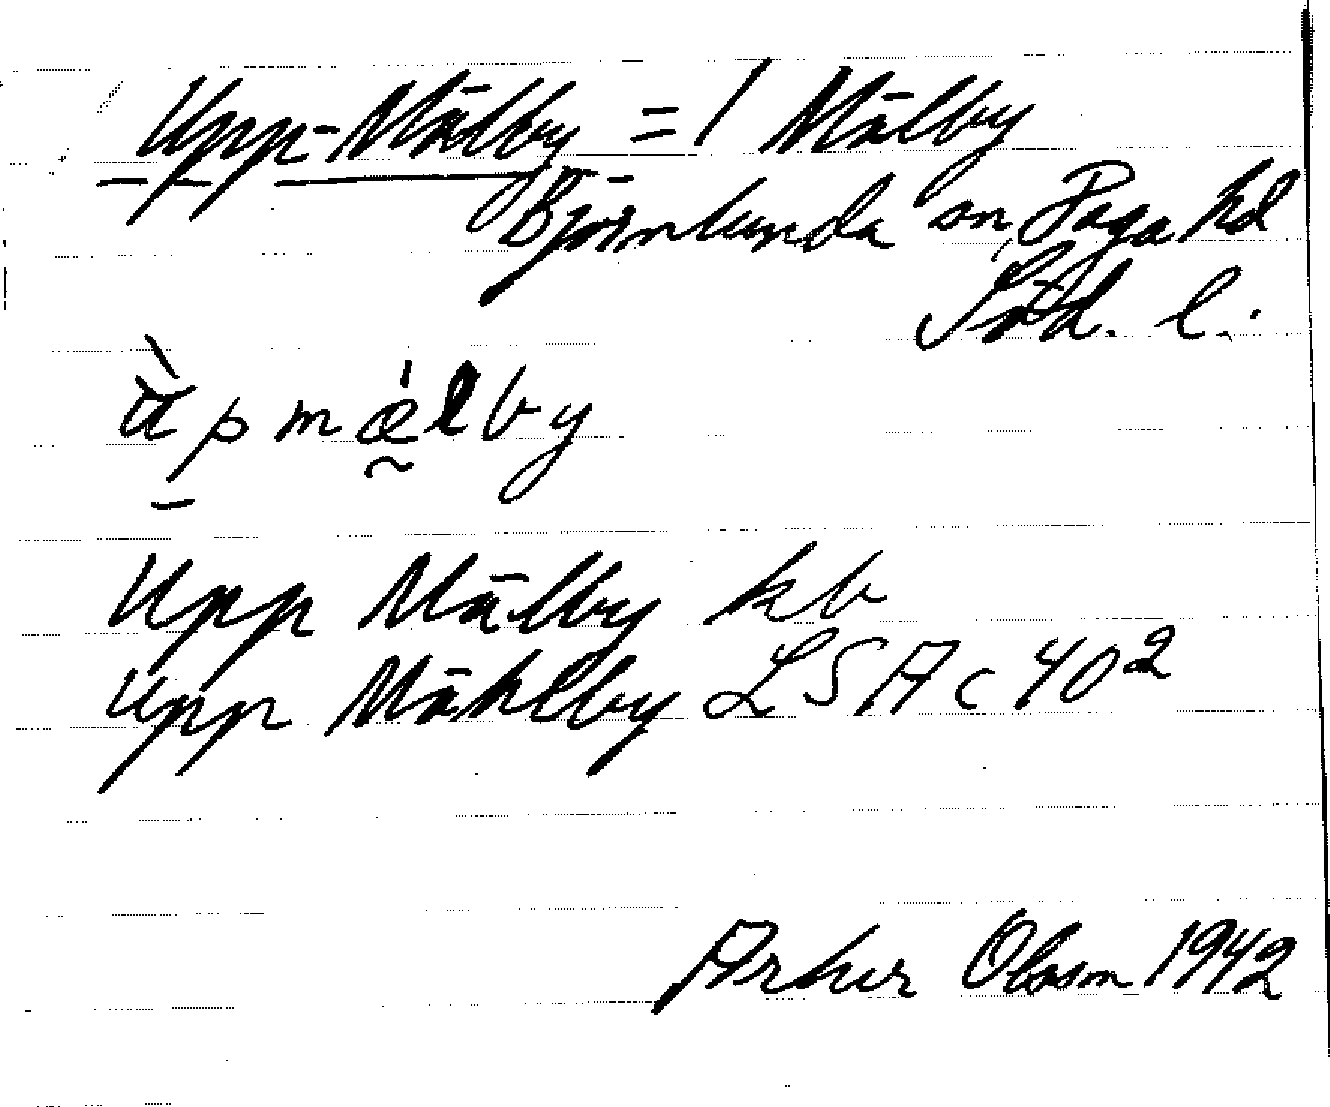 Upp-Mälby = 1 Mälby
Björnlunda sn, Daga hd
Söd. l.
ùpmǽlby
Upp Mälby kb
Upp Mählby LSA c 40²
Arthur Olsson 1942